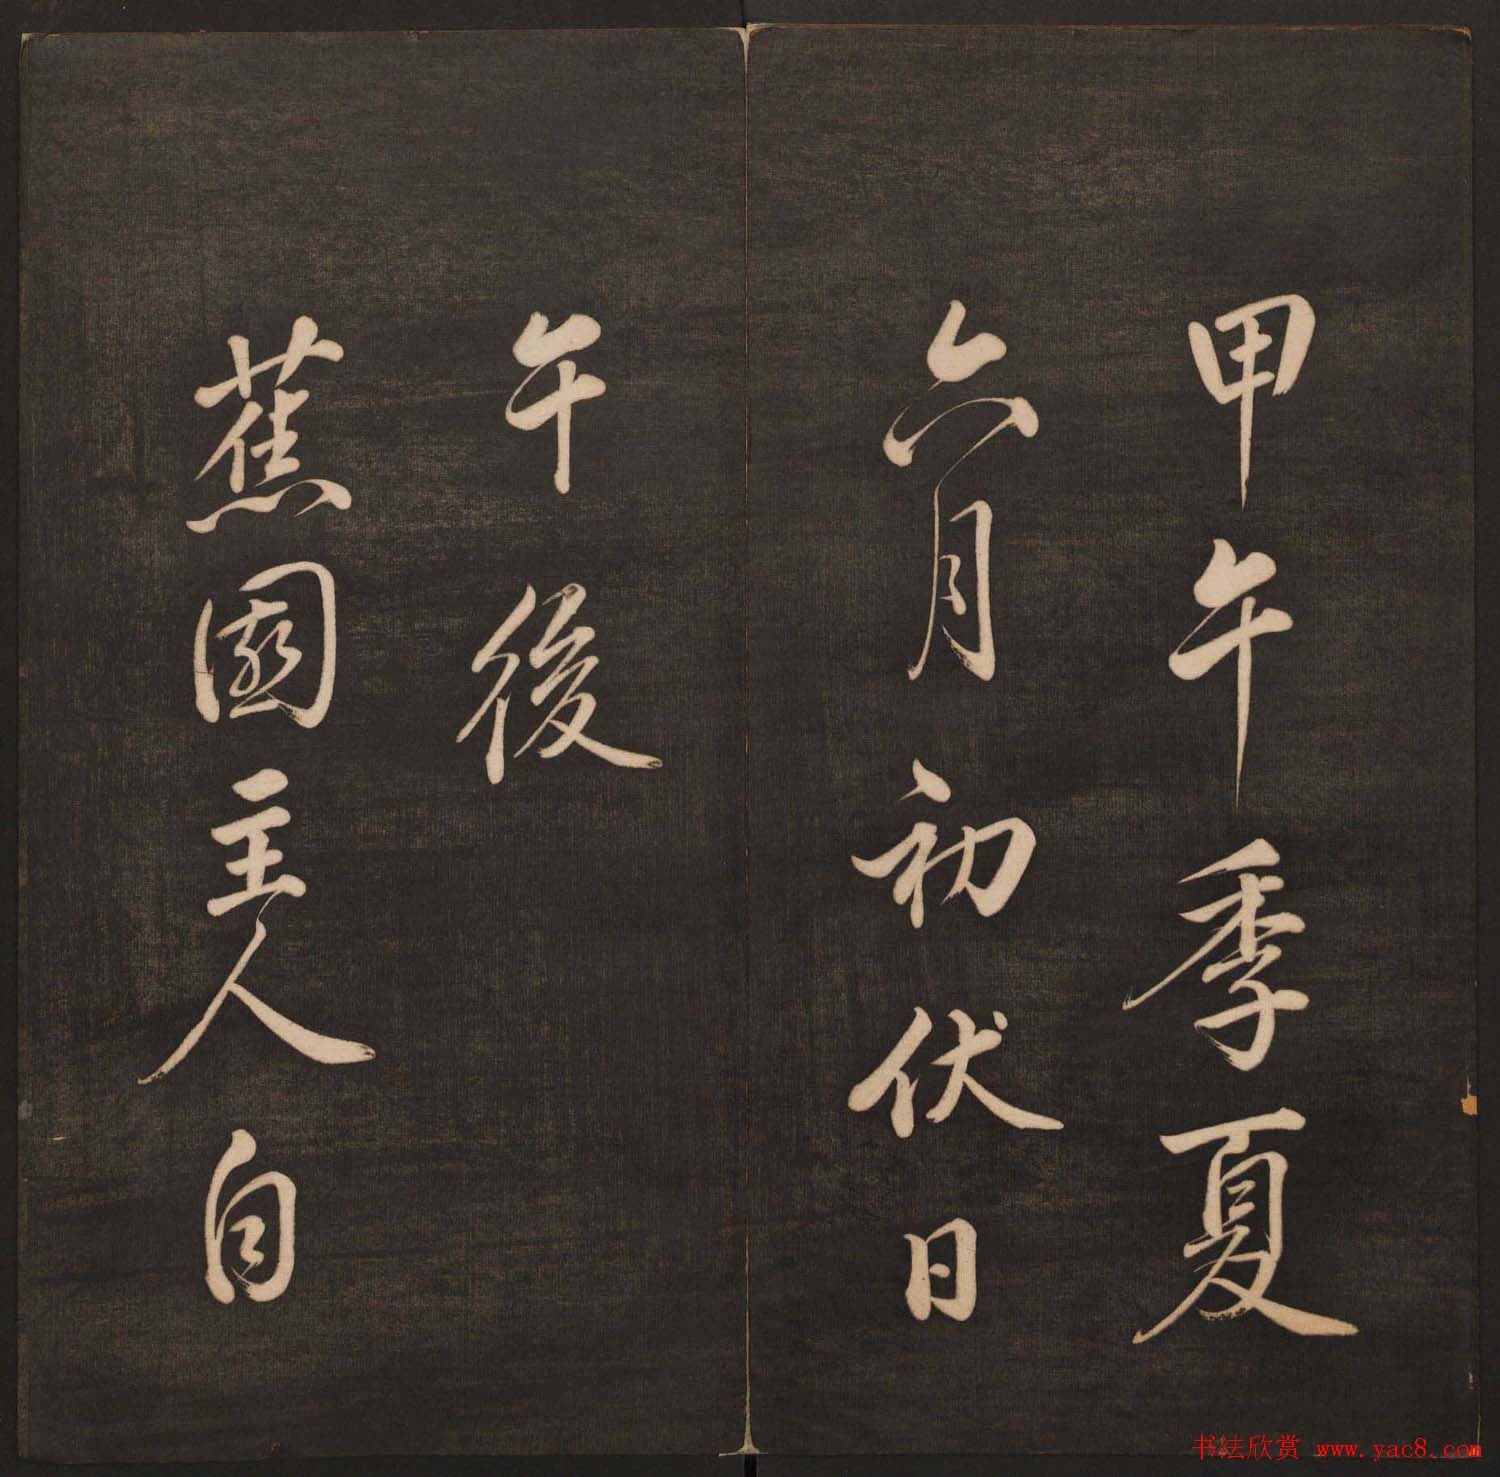 甲午季夏
六月初伏日
午後
蕉園主人自
书法欣赏 www.yac8.com